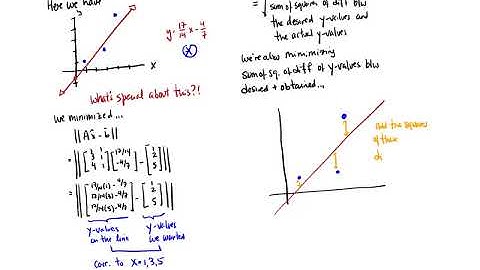 Here we have
y = 17/14 x - 4/7
(*)
x
What's special about this?!
we minimized...
||Ax̂ - b||
= || [1 1 3 1 4 1] [17/14 -4/7] - [1 2 5] ||
= || [17/14(1) - 4/7 17/14(3) - 4/7 17/14(5) - 4/7] - [1 2 5] ||
y-values on the line
y-values we wanted
corr. to x=1,3,5
= √ sum of squares of diff b/w
the desired y-values and
the actual y-values
we're also minimizing
sum of sq. of diff of y-values b/w
desired + obtained...
add the squares
of these
di